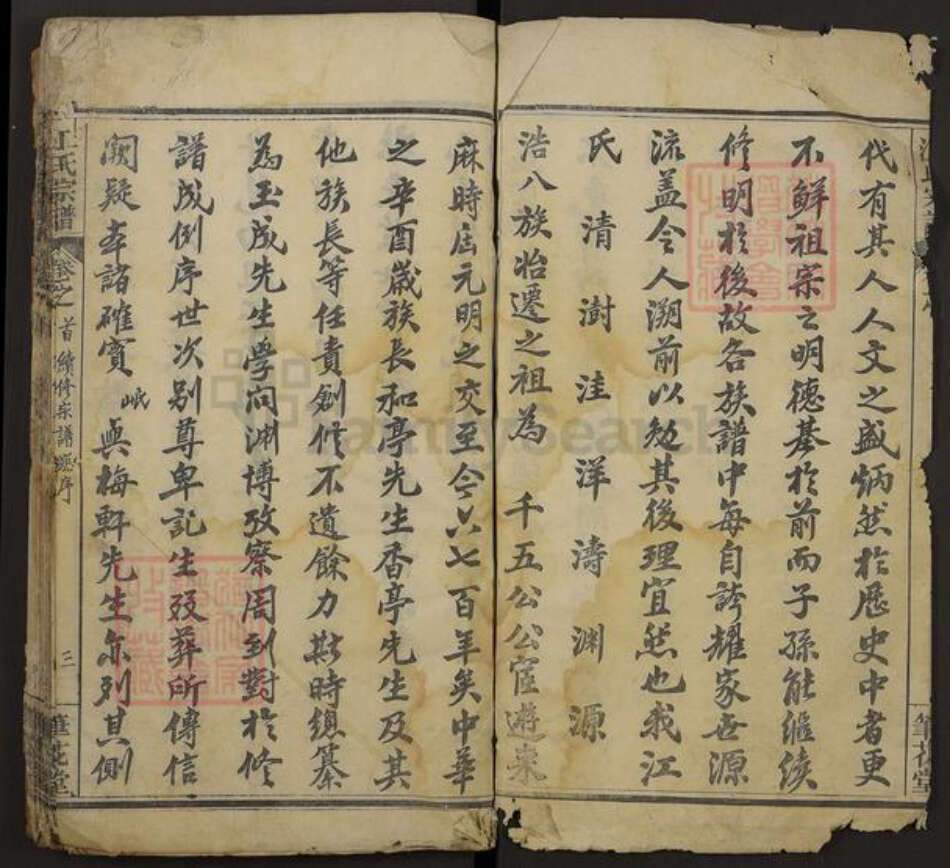 代有其人人文之盛炳然於歷史中者更
不鮮祖宗之明德基於前而子孫能繼续
修明於後故各族譜中每自誇耀家世源
流盖令人溯前以勉其後理宜然也我江
氏清澍洼洋濤渊源
浩八族始遷之祖為千五公公宦遊来
麻時届元明之交至今六七百年矣中華
之辛酉歲族長和亭先生香亭先生及其
他族長等任責創修不遺餘力斯時總纂
為玉成先生學问渊博攷察周到對於修
譜成例序世次别尊卑記生殁葬所傳信
阙疑率諸確實岷與梅軒先生亦列其側
江氏宗譜
卷之首
續修宗譜總序
三
筆花堂
筆花堂
FamilySearch